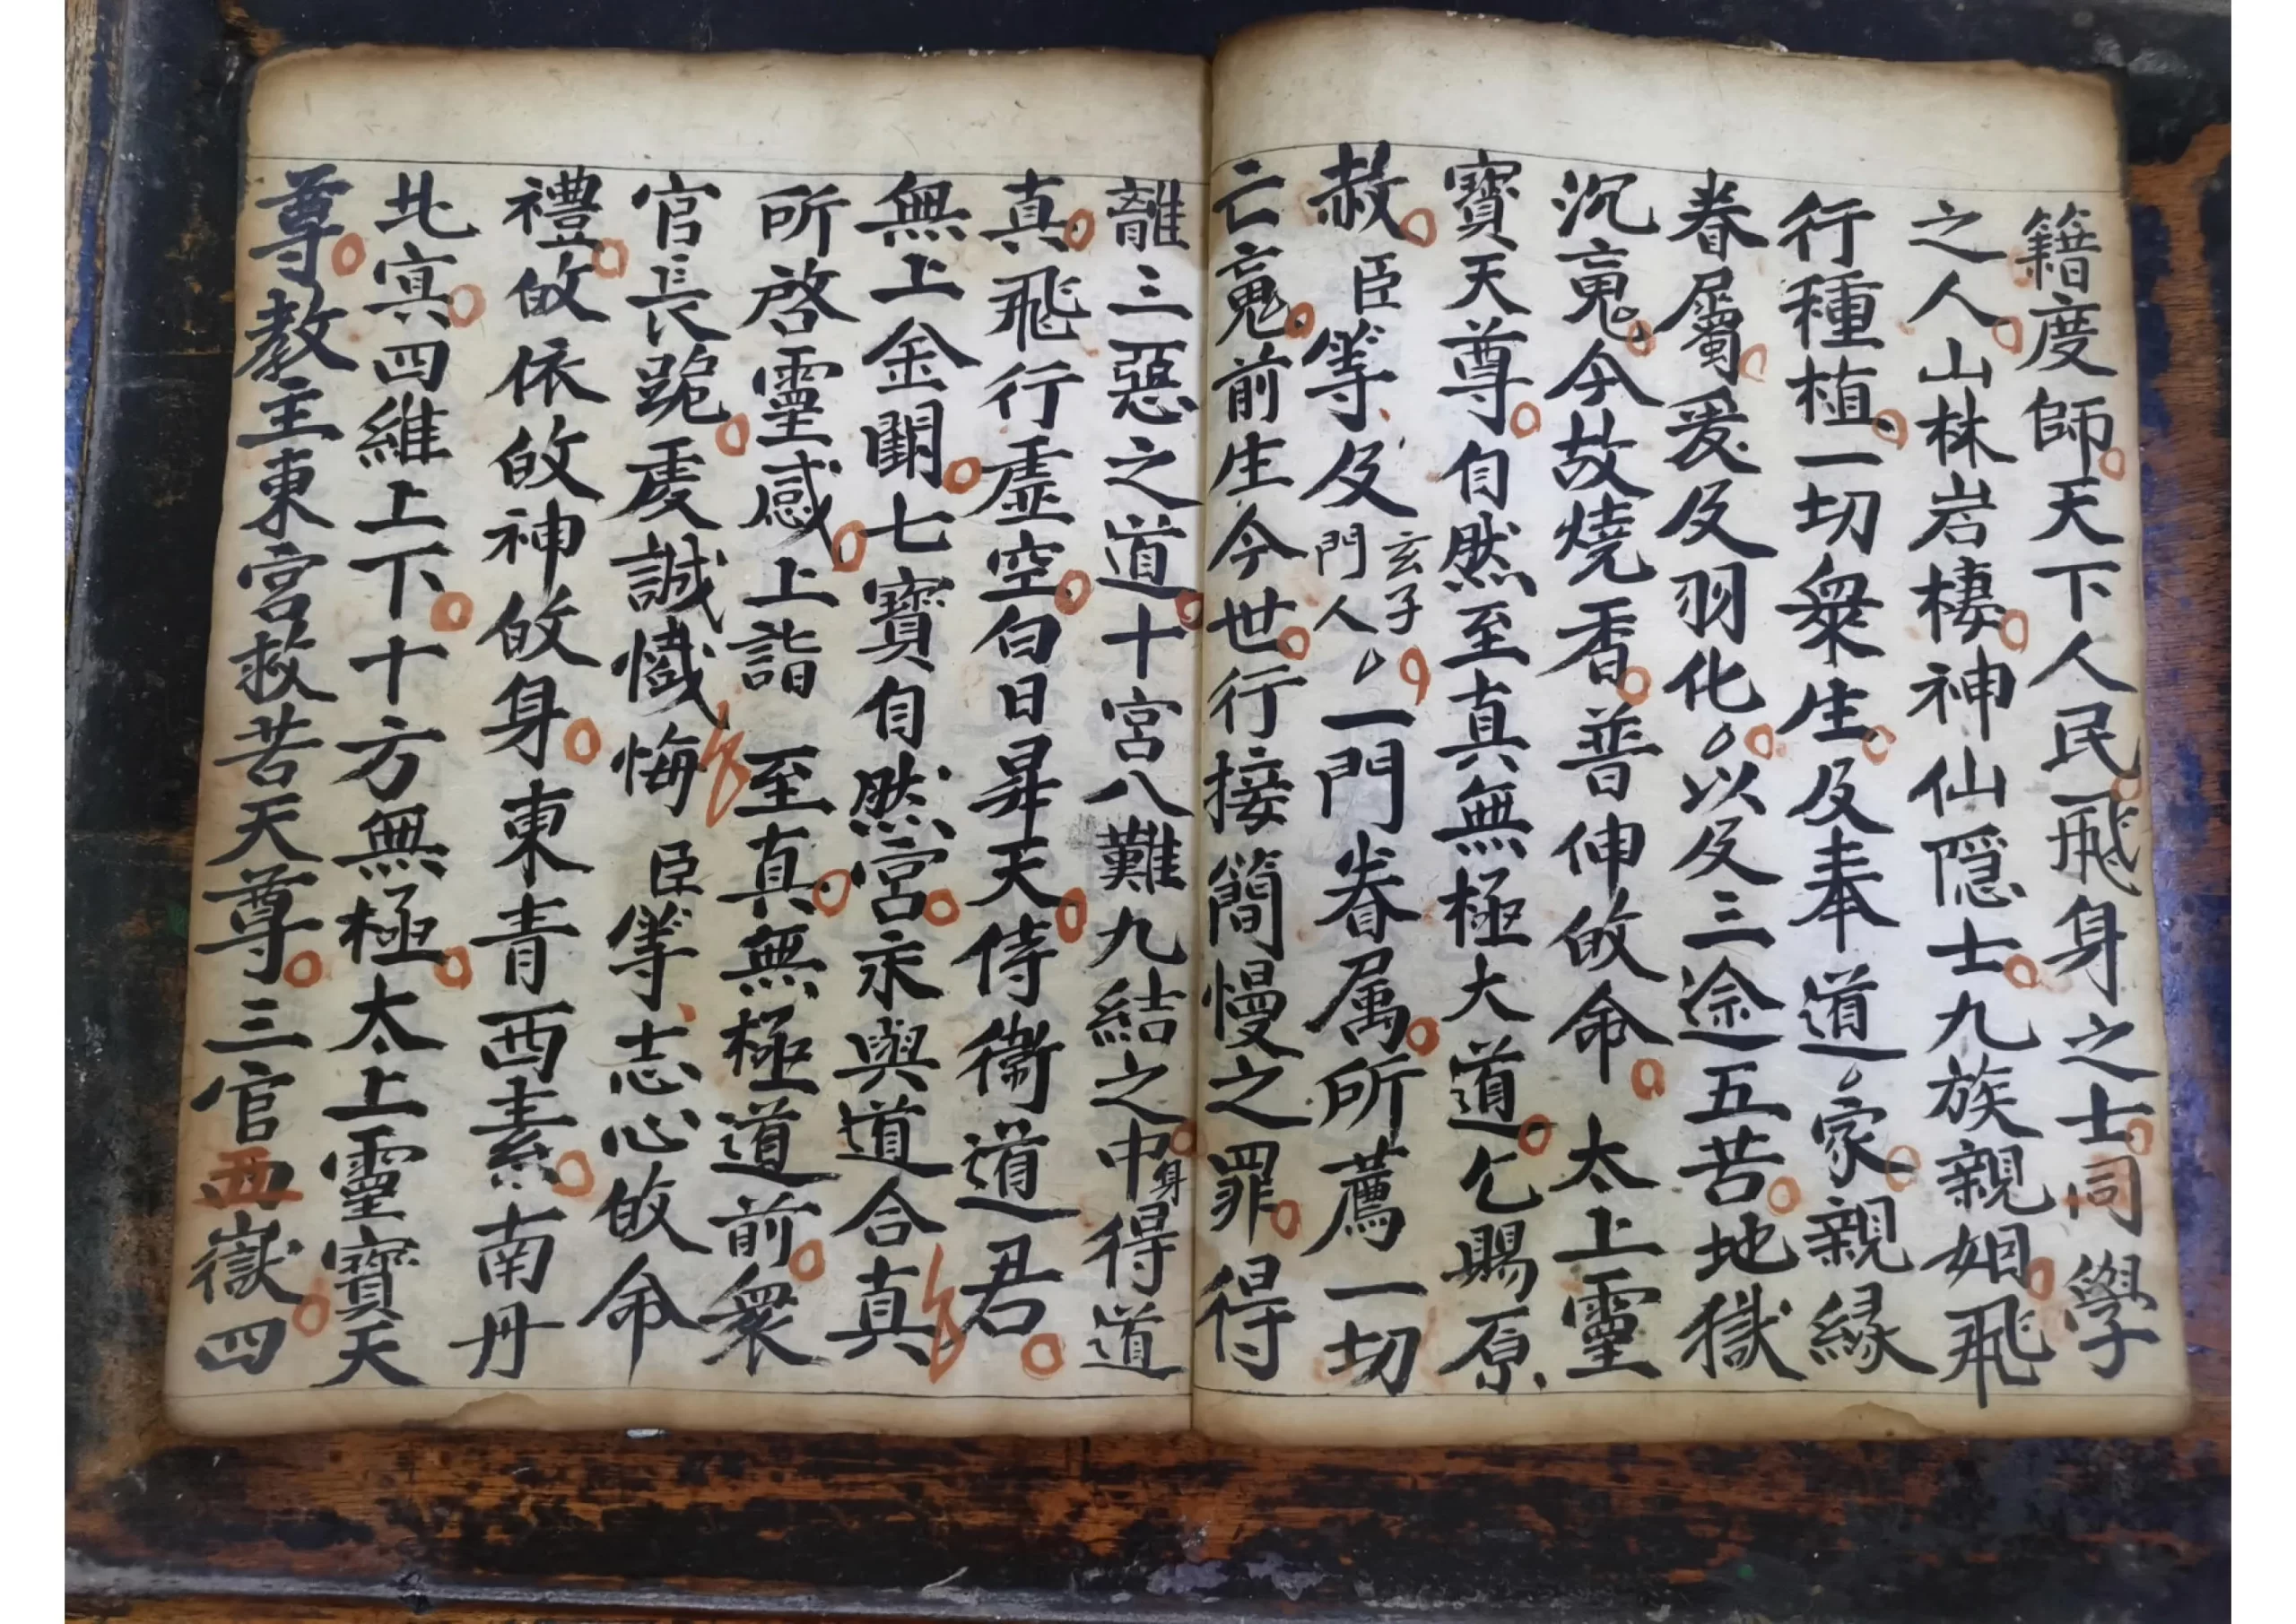 籍度師天下人民飛身之士同學
之人山林岩棲神仙隠士九族親姻飛
行種植一切衆生及奉道家親緣
眷屬爰及羽化以及三途五苦地獄
沉䰟今故燒香普伸皈命 太上靈
寶天尊自然至真無極大道乞賜原
赦臣等及玄子門人一門眷属所薦一切
亡䰟前生今世行接簡慢之罪得
離三惡之道十宮八難九結之中身得道
真飛行虛空白日昇天侍衛道君
無上金闕七寶自然宮永與道合真
所啓靈感上詣 至真無極道前衆
官長跪虔誠懺悔 臣等志心皈命
禮皈依皈神皈身東青西素南丹
北㝠四維上下十方無極太上靈寶天
尊教主東宮救苦天尊三官西嶽四